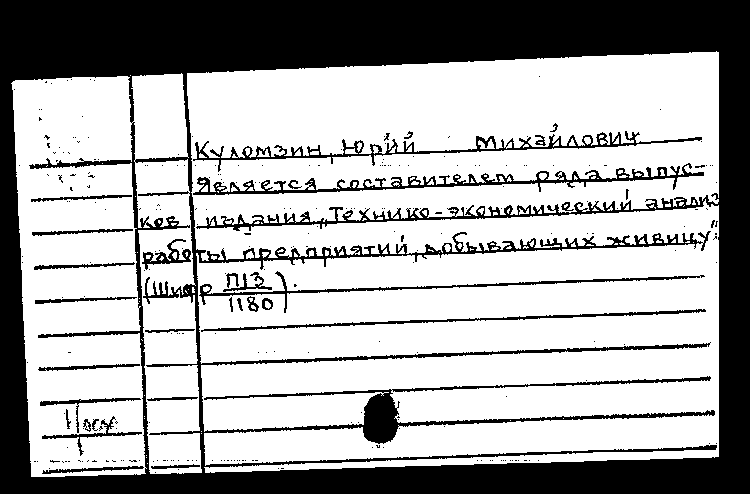 Куломзин, Юрий Михайлович
Является составителем ряда выпус-
ков издания „Технико-экономический анализ
работы предприятий, добывающих живицу".
(Шифр П13/1180).